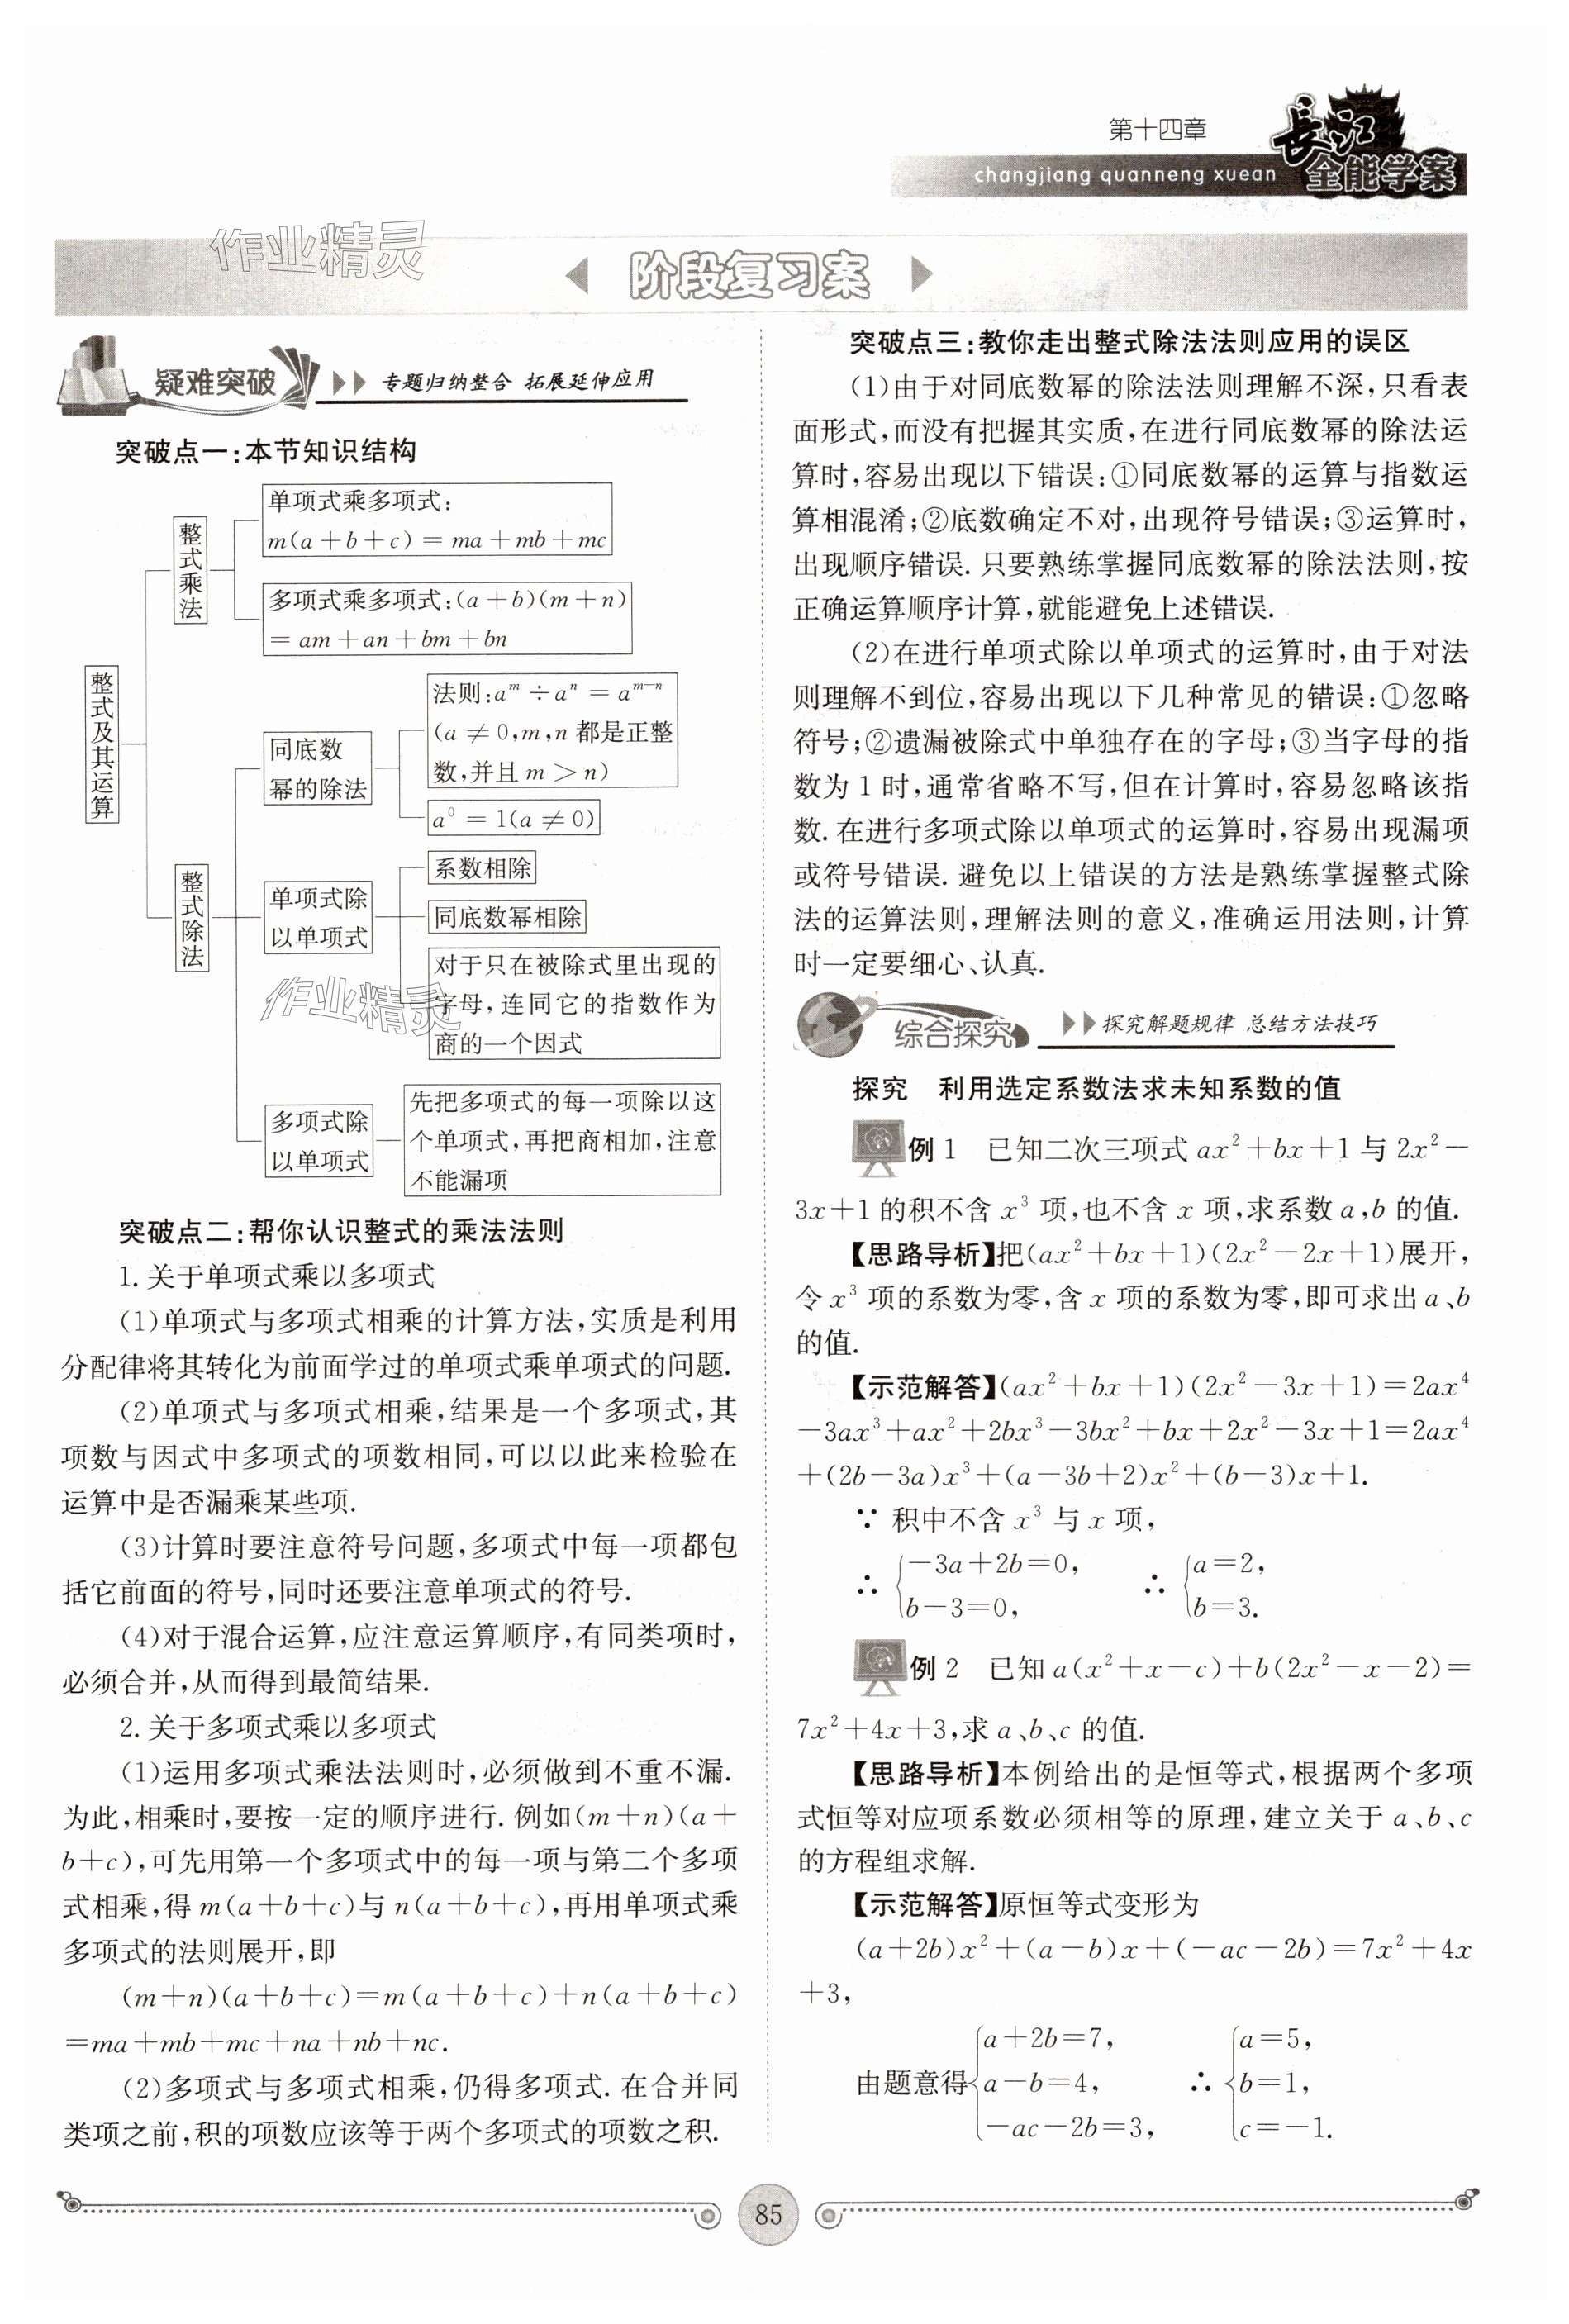 第十四章
长江
全能学案
changjiang quanneng xuean
作业精灵
阶段复习案
疑难突破 专题归纳整合 拓展延伸应用
突破点一:本节知识结构
整式及其运算
整式乘法
单项式乘多项式:
m(a+b+c) = ma+mb+mc
多项式乘多项式:(a+b)(m+n)
= am+an+bm+bn
整式除法
同底数
幂的除法
法则:aᵐ÷aⁿ = aᵐ⁻ⁿ
(a≠0,m,n 都是正整
数,并且 m>n)
a⁰ = 1(a≠0)
单项式除
以单项式
系数相除
同底数幂相除
对于只在被除式里出现的
字母,连同它的指数作为
商的一个因式
作业精灵
多项式除
以单项式
先把多项式的每一项除以这
个单项式,再把商相加,注意
不能漏项
突破点二:帮你认识整式的乘法法则
1. 关于单项式乘以多项式
(1)单项式与多项式相乘的计算方法,实质是利用
分配律将其转化为前面学过的单项式乘单项式的问题.
(2)单项式与多项式相乘,结果是一个多项式,其
项数与因式中多项式的项数相同,可以以此来检验在
运算中是否漏乘某些项.
(3)计算时要注意符号问题,多项式中每一项都包
括它前面的符号,同时还要注意单项式的符号.
(4)对于混合运算,应注意运算顺序,有同类项时,
必须合并,从而得到最简结果.
2. 关于多项式乘以多项式
(1)运用多项式乘法法则时,必须做到不重不漏.
为此,相乘时,要按一定的顺序进行. 例如(m+n)(a+
b+c),可先用第一个多项式中的每一项与第二个多项
式相乘,得 m(a+b+c)与 n(a+b+c),再用单项式乘
多项式的法则展开,即
(m+n)(a+b+c)=m(a+b+c)+n(a+b+c)
=ma+mb+mc+na+nb+nc.
(2)多项式与多项式相乘,仍得多项式. 在合并同
类项之前,积的项数应该等于两个多项式的项数之积.
突破点三:教你走出整式除法法则应用的误区
(1)由于对同底数幂的除法法则理解不深,只看表
面形式,而没有把握其实质,在进行同底数幂的除法运
算时,容易出现以下错误:①同底数幂的运算与指数运
算相混淆;②底数确定不对,出现符号错误;③运算时,
出现顺序错误. 只要熟练掌握同底数幂的除法法则,按
正确运算顺序计算,就能避免上述错误.
(2)在进行单项式除以单项式的运算时,由于对法
则理解不到位,容易出现以下几种常见的错误:①忽略
符号;②遗漏被除式中单独存在的字母;③当字母的指
数为 1 时,通常省略不写,但在计算时,容易忽略该指
数. 在进行多项式除以单项式的运算时,容易出现漏项
或符号错误. 避免以上错误的方法是熟练掌握整式除
法的运算法则,理解法则的意义,准确运用法则,计算
时一定要细心、认真.
综合探究 探究解题规律 总结方法技巧
探究 利用选定系数法求未知系数的值
例 1 已知二次三项式 ax²+bx+1 与 2x²−
3x+1 的积不含 x³ 项,也不含 x 项,求系数 a,b 的值.
【思路导析】把(ax²+bx+1)(2x²−2x+1)展开,
令 x³ 项的系数为零,含 x 项的系数为零,即可求出 a、b
的值.
【示范解答】(ax²+bx+1)(2x²−3x+1)=2ax⁴
−3ax³+ax²+2bx³−3bx²+bx+2x²−3x+1=2ax⁴
+(2b−3a)x³+(a−3b+2)x²+(b−3)x+1.
∵ 积中不含 x³ 与 x 项,
∴ {−3a+2b=0, ∴ {a=2,
b−3=0, b=3.
例 2 已知 a(x²+x−c)+b(2x²−x−2)=
7x²+4x+3,求 a、b、c 的值.
【思路导析】本例给出的是恒等式,根据两个多项
式恒等对应项系数必须相等的原理,建立关于 a、b、c
的方程组求解.
【示范解答】原恒等式变形为
(a+2b)x²+(a−b)x+(−ac−2b)=7x²+4x
+3,
a+2b=7, a=5,
由题意得{a−b=4, ∴ {b=1,
−ac−2b=3, c=−1.
85